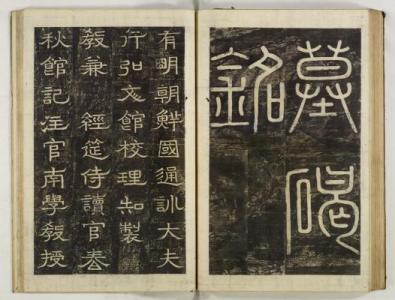 墓碣
銘
有明朝鮮國通訓大夫
行弘文館校理知製
教兼 經筵侍讀官春
秋館記注官南學教授